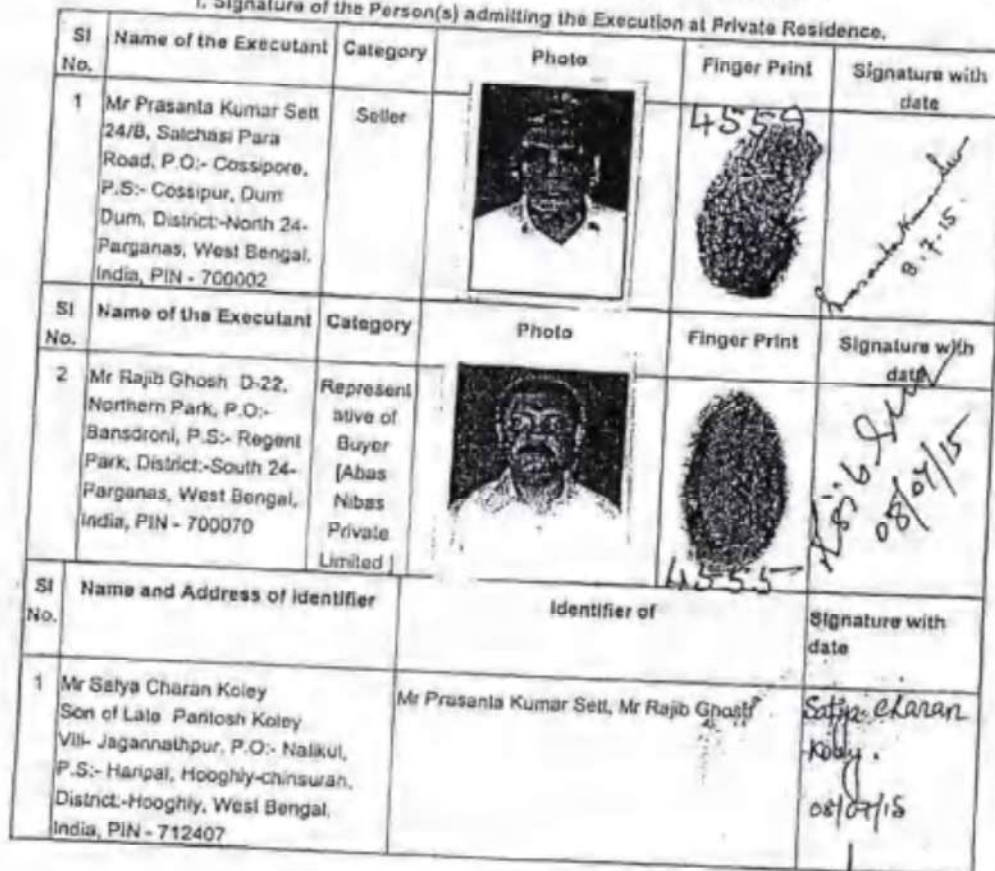 I. Signature of the Person(s) admitting the Execution at Private Residence.
Sl No. Name of the Executant Category Photo Finger Print Signature with date
1 Mr Prasanta Kumar Sett
24/B, Satchasi Para
Road, P.O:- Cossipore,
P.S:- Cossipur, Dum
Dum, District:-North 24-
Parganas, West Bengal,
India, PIN - 700002
Seller
4559
8.7.15.
Sl No. Name of the Executant Category Photo Finger Print Signature with date
2 Mr Rajib Ghosh D-22,
Northern Park, P.O:-
Bansdroni, P.S:- Regent
Park, District:-South 24-
Parganas, West Bengal,
India, PIN - 700070
Represent
ative of
Buyer
[Abas
Nibas
Private
Limited ]
4555
08/07/15
Sl No. Name and Address of identifier Identifier of Signature with date
1 Mr Satya Charan Koley
Son of Late Paritosh Koley
Vill- Jagannathpur, P.O:- Nalikul,
P.S:- Haripal, Hooghly-chinsurah,
District:-Hooghly, West Bengal,
India, PIN - 712407
Mr Prasanta Kumar Sett, Mr Rajib Ghosh
Satya Charan
Koley.
08/07/15